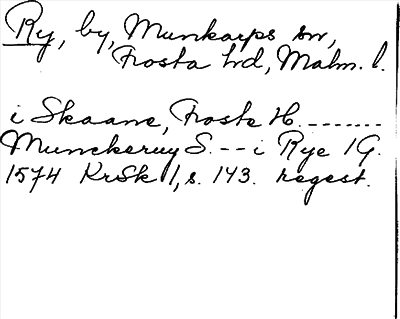 Ry, by, Munkarps sn,
Frosta hd, Malm. l.
i Skaane, Froste H. -------
Munckeruy S. -- i Rye 1 G.
1574 KrSk 1, s. 143. regest.